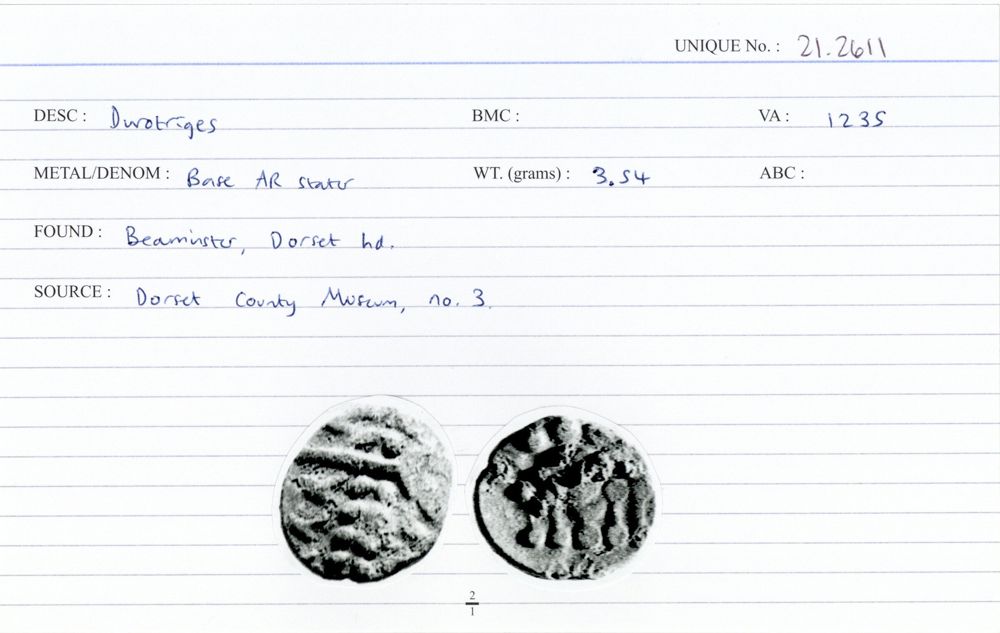 UNIQUE No. : 21.2611
DESC : Durotriges BMC : VA : 1235
METAL/DENOM : Base AR stater WT. (grams) : 3.54 ABC :
FOUND : Beaminster, Dorset hd.
SOURCE : Dorset County Museum, no. 3.
2
1